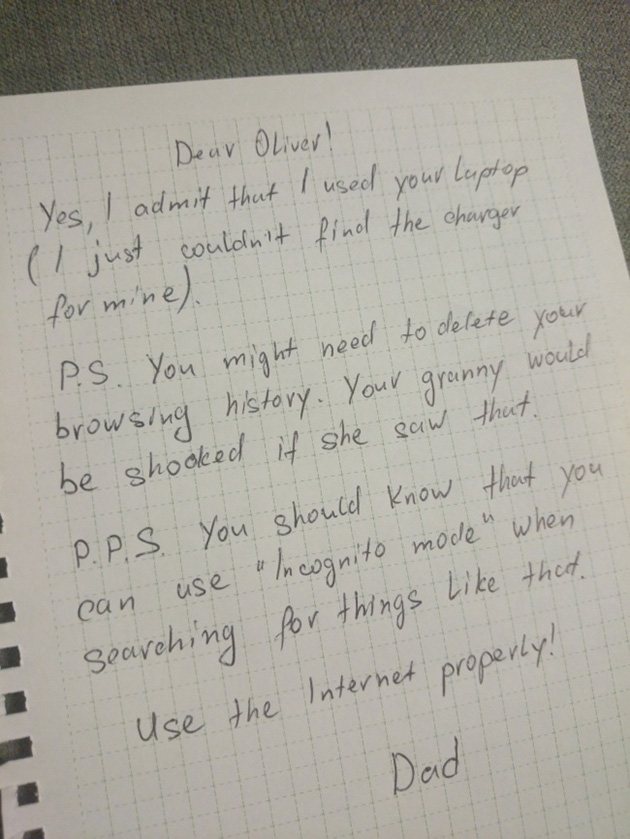 Dear Oliver!
Yes, I admit that I used your laptop
(I just couldn't find the charger
for mine).
P.S. You might need to delete your
browsing history. Your granny would
be shooked if she saw that.
P.P.S. You should know that you
can use "Incognito mode" when
searching for things like that.
Use the Internet properly!
Dad